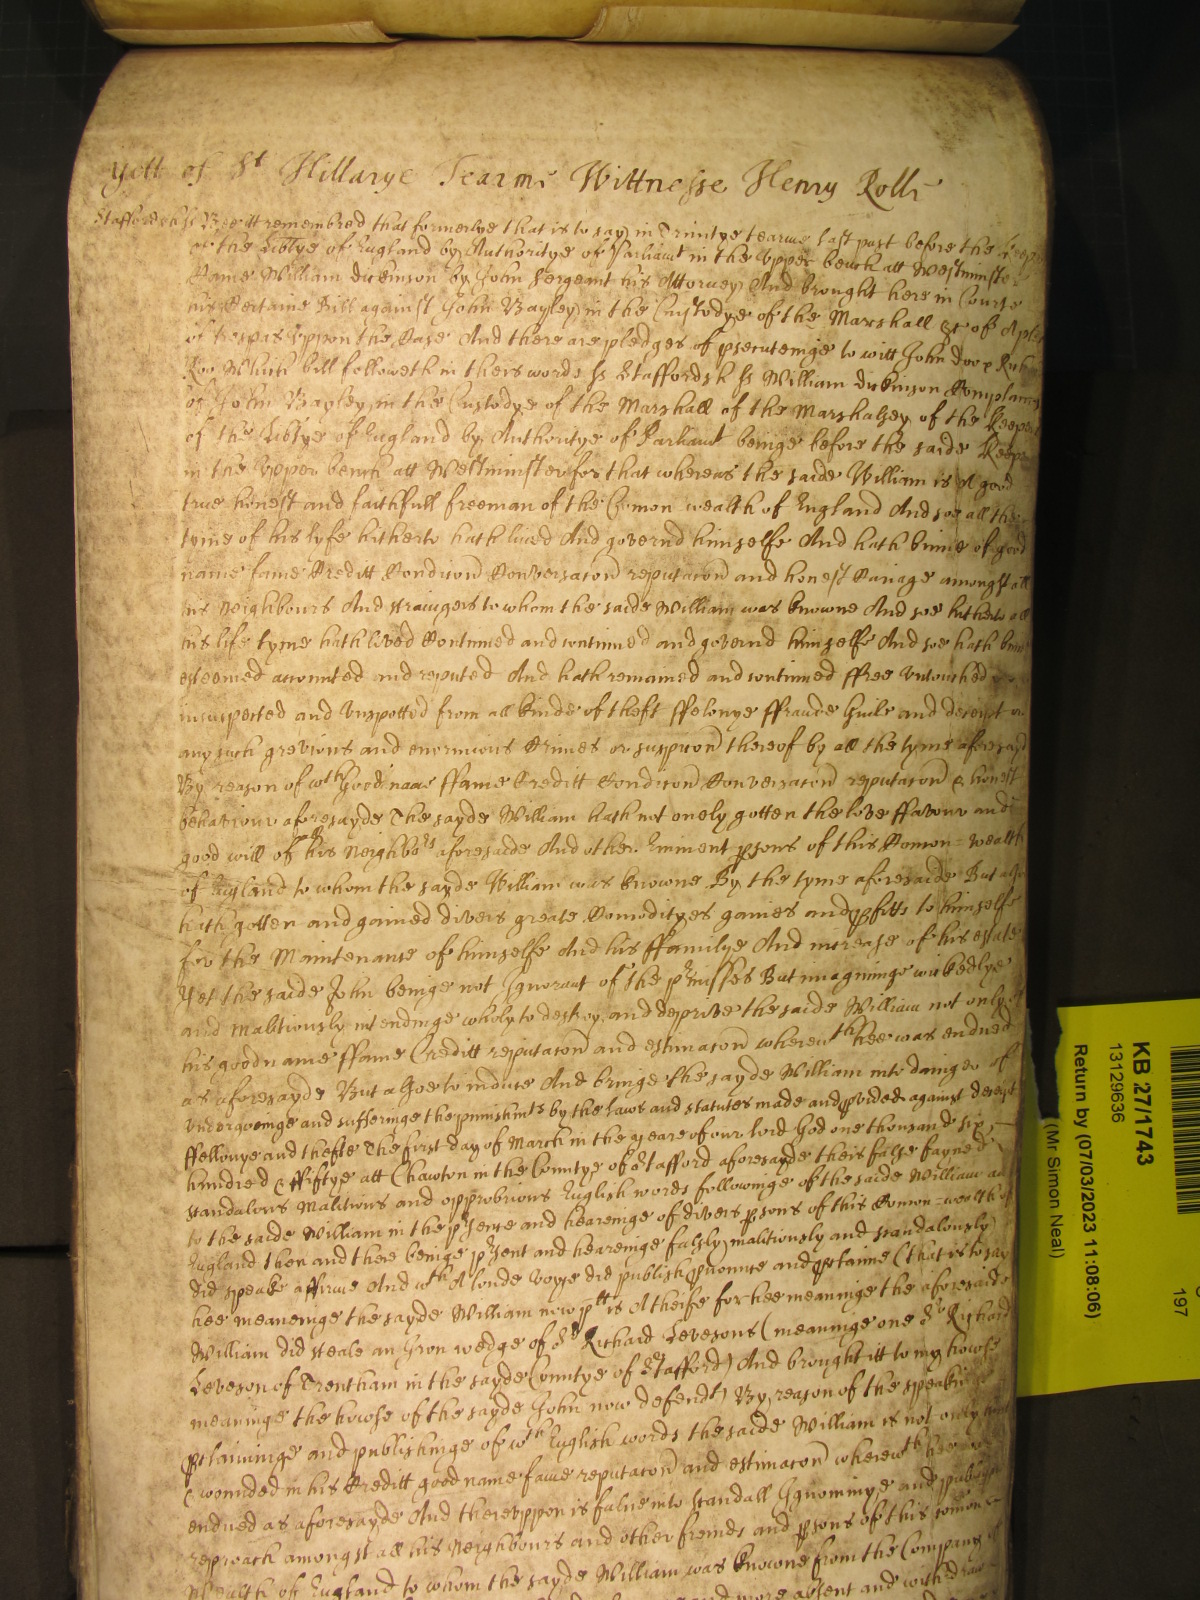 yett of St Hillarye Tearme Wittnesse Henry Rolle
Staffordsh ss Bee itt remembred that formerlye that is to say in Trinitye tearme last past before the Keep
of the Libtye of England by Authoritye of Parliamt in the Upper bench att Westminster
Came William dickinson by John Sergeant his Attorney And brought here in Courte
his Certaine Bill against John Bayley in the Custodye of the Marshall &c of A ple
of trespas uppon the Case And there are pledges of psecuteinge to witt John doo &
Roo Which bill followeth in theis words ss Staffordsh ss William dickinson Complaines
of John Bayley in the Custodye of the Marshall of the Marshalsey of the Keepers
of the Libtye of England by Authoritye of Parliamt beinge before the saide Keepe
in the Upper bench att Westminster for that whereas the saide William is A good
true honest and faithfull freeman of the Comon wealth of England And soe all the
tyme of his lyfe hitherto hath lived And governd himselfe And hath binne of good
name fame Creditt Condicon Conversacon reputacon and honest Cariage amongst all
his Neighbours And straingers to whom the saide William was knowne And soe hitherto all
his life tyme hath loved Continued and continued and governd himselfe And soe hath binne
esteemed accounted and reputed And hath remained and continued ffree untouched
insuspected and unspotted from all kinde of theft ffelonye ffraude Guile and deceipt or
any such grevious and enormious Crimes or suspicon thereof by all the tyme aforesayd
By reason of wch good name ffame Creditt Condicon Conversacon reputacon & honest
behaviour aforesayde The sayde William hath not onely gotten the love ffavour and
good will of his Neighbors aforesaide And other Eminent psons of this Comon=wealth
of England to whom the sayde William was knowne By the tyme aforesaide But also
hath gotten and gained divers greate Comodityes gaines and pfitts to himselfe
for the Maintenance of himselfe And his ffamilye And increase of his estate
Yet the saide John beinge not Ignorant of the pmisses But imagininge wickedlye
and Malitiously intendinge wholy to destroy and deprive the saide William not only of
his good name ffame Creditt reputacon and estimacon wherewth hee was endued
as aforesayde But alsoe to induce And bringe the sayde William into dainger of
undergoeinge and sufferinge the punishmts by the Laws and statutes made and pvided against deceipt
ffellonye and thefte The first day of March in the yeare of our lord God one thousand six
hundred & ffiftye att Chawton in the Countye of Stafford aforesayde theis false fayned
scandalous Malitious and opprobrious English words followinge of the saide William and
to the saide William in the psence and heareinge of divers psons of this Comon=wealth of
England then and there beinge psent and heareinge falsly malitiously and scandalously
did speake affirme And wth A loude voyce did publish pnounce and pclaime (that is to say
hee meaneinge the sayde William now plt is A theife for hee meaninge the aforesaide
William did steale an Iron wedge of Sr Richard Levesons (meaninge one Sr Richard
Leveson of Trentham in the sayde Countye of Stafford) And brought itt to my howse
meaninge the howse of the sayde John now defendt) By reason of the speakinge
pclaiminge and publishinge of wch English words the saide William is not only
wounded in his Creditt good name fame reputacon and estimacon wherewth hee
endued as aforesayde And thereuppon is falne into Scandall Ignominye and publique
reproach amongst all his Neighbours and other freinds and psons of this comon
Wealth of England to whom the sayde William was knowne from the Company of
and more absent and withdraw
KB 27/1743
13129636
Return by (07/03/2023 11:08:06)
(Mr Simon Neal)
197